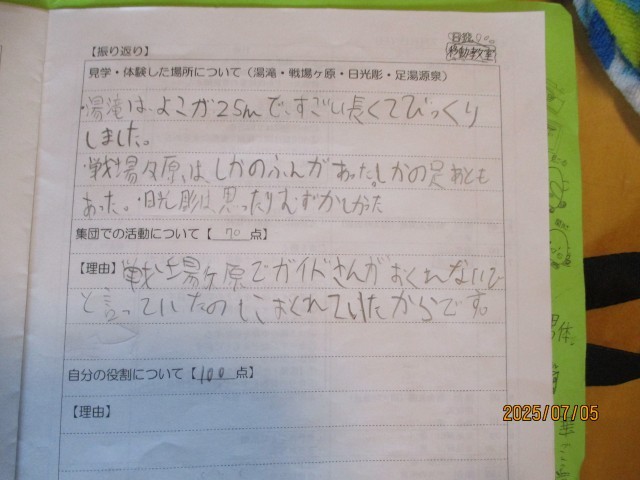 日光
移動教室
【振り返り】
見学・体験した場所について（湯滝・戦場ヶ原・日光彫・足湯源泉）
・湯滝は、よこが25mで、すごい長くてびっくり
しました。
・戦場ヶ原は しかのふんがあった。しかの足あとも
あった。・日光彫は、思ったりむずかしかった
集団での活動について【 70 点】
【理由】戦場ヶ原でガイドさんがおくれないで
と言っていたのにおくれていたからです。
自分の役割について【100 点】
【理由】
2025/07/05